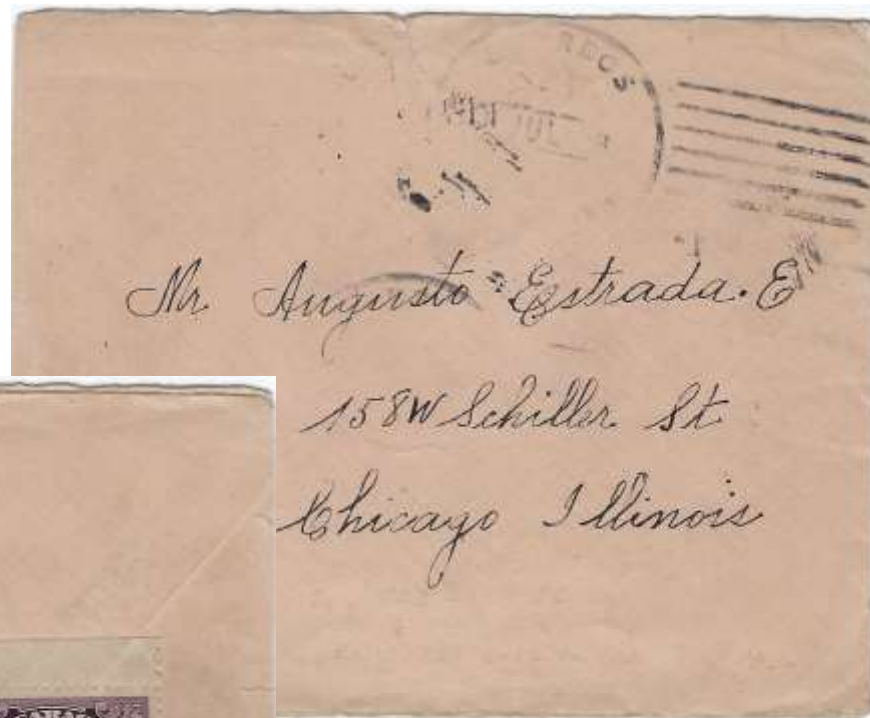 Mr. Augusto Estrada. E
158 W Schiller St
Chicago Illinois